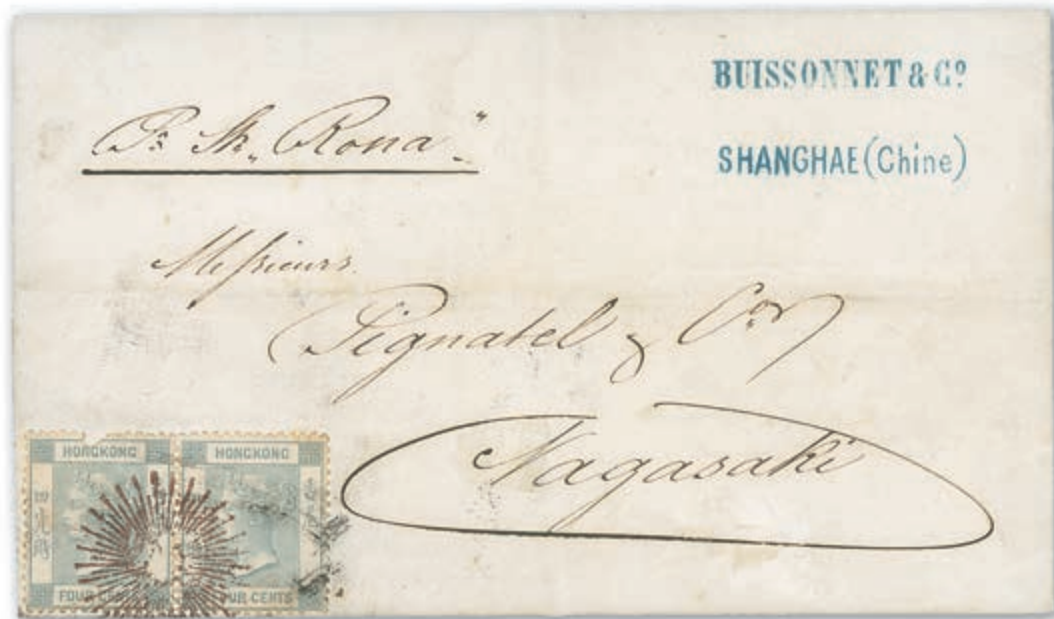 BUISSONNET & Cº
SHANGHAE (Chine)
Pr Str „Rona"
Messieurs
Pignatel & Co
Nagasaki
HONGKONG HONGKONG
四先時
FOUR CENTS FOUR CENTS